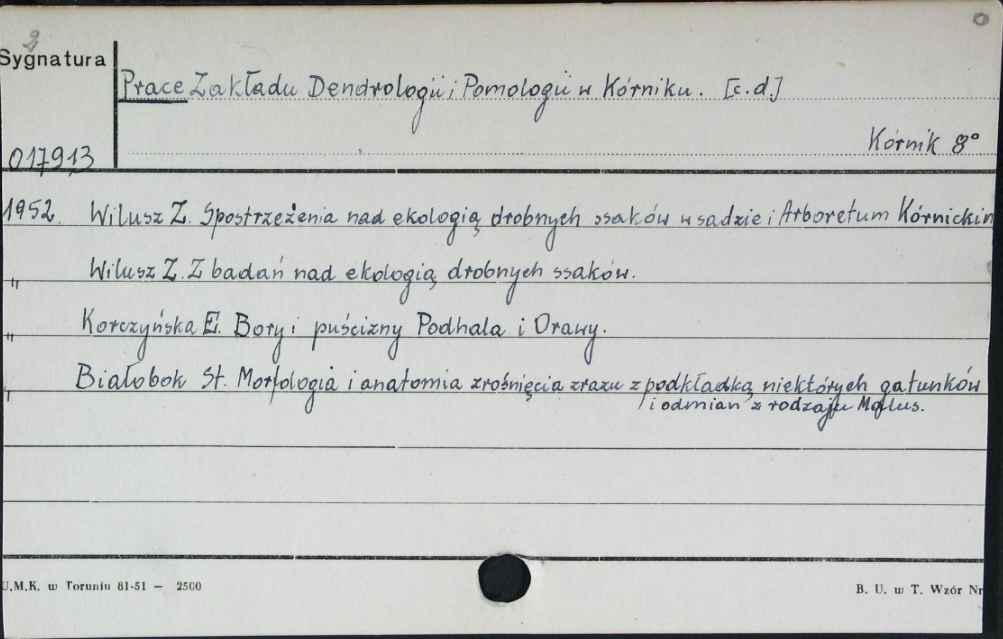 2
Sygnatura
Prace Zakładu Dendrologii i Pomologii w Kórniku. [c.d.]
017913
Kórnik 8°
1952. Wilusz Z. Spostrzeżenia nad ekologią drobnych ssaków w sadzie i Arboretum Kórnickim
" Wilusz Z. Z badań nad ekologią drobnych ssaków.
" Korczyńska E. Bory i puścizny Podhala i Orawy.
" Białobok St. Morfologia i anatomia zrośnięcia zrazu z podkładką niektórych gatunków
i odmian z rodzaju Malus.
U.M.K. w Toruniu 81-51 — 2500
B. U. w T. Wzór Nr